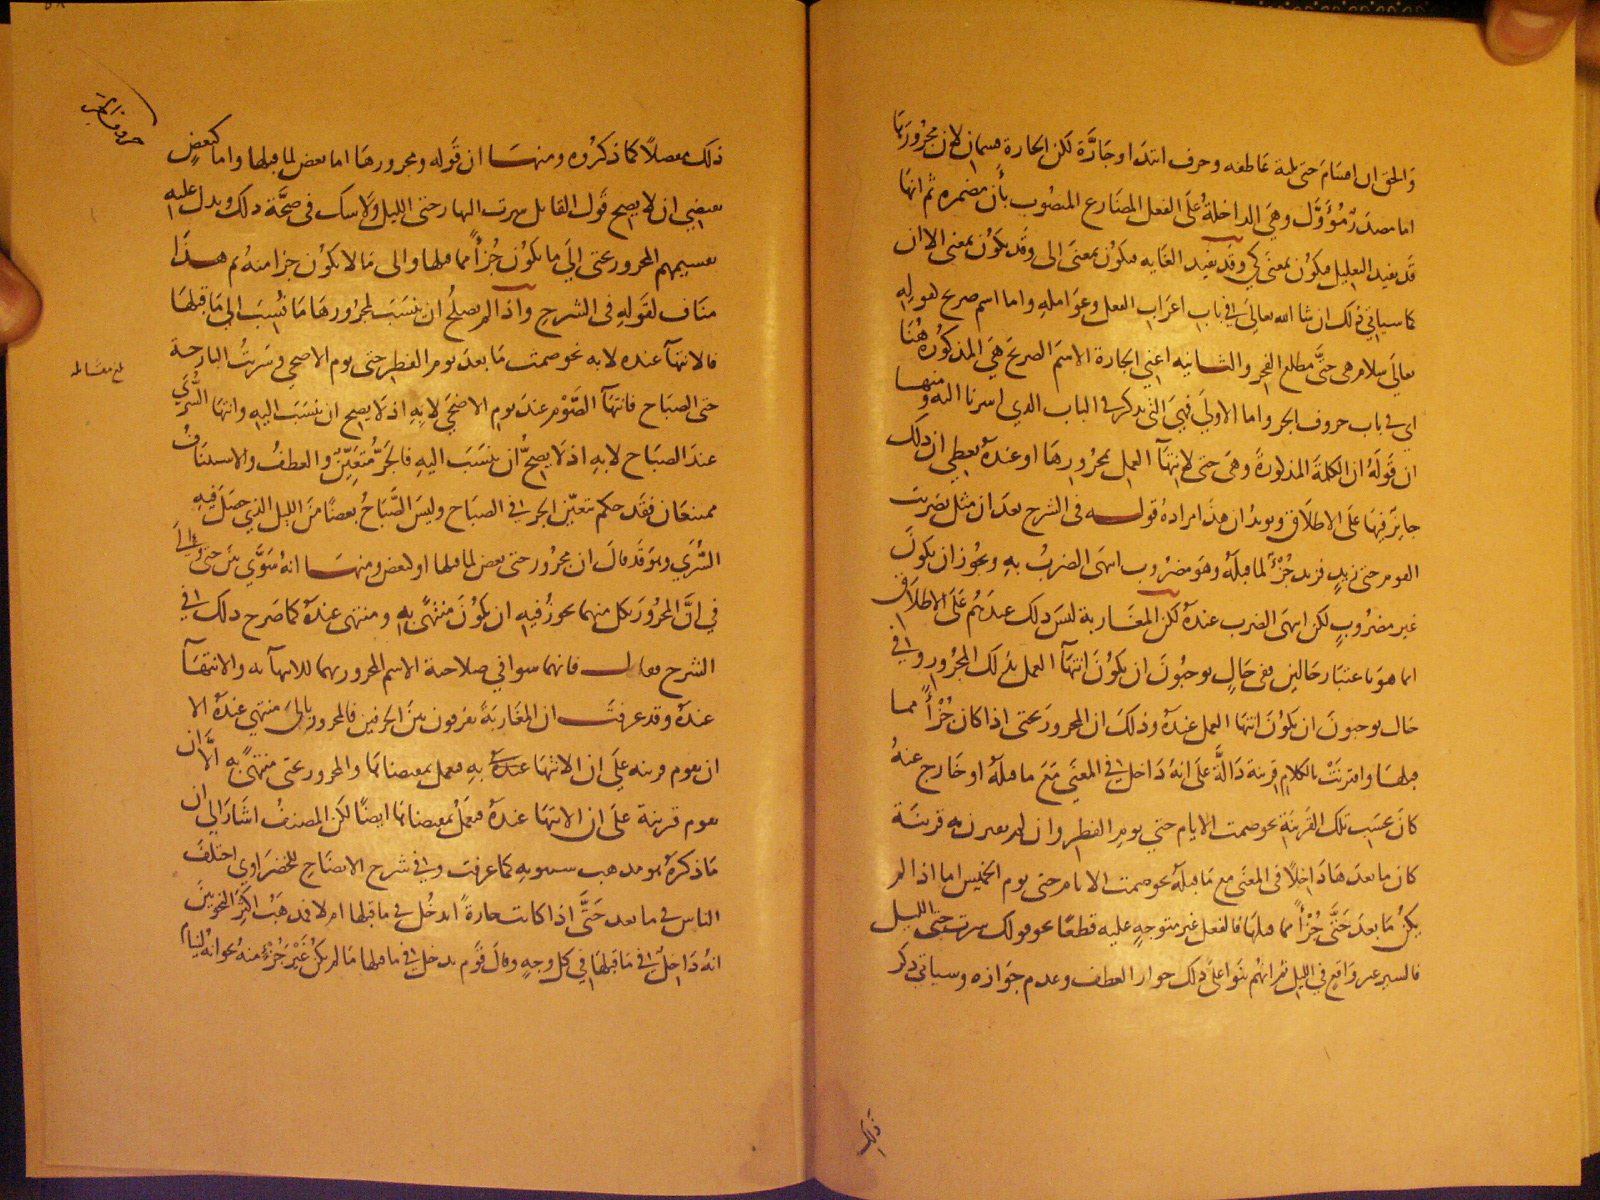 والحق ان اقسام حتى ثلاثة عاطفه وحرف ابتدا وجارة لكن الجارة قسمان لان مجرورها
اما مصدر مؤوّل وهي الداخلة على الفعل المضارع المنصوب بأن مضمره ثم انها
قد تفيد التعليل فيكون بمعنى كي وقد تفيد الغايه فيكون بمعنى الى وقد يكون بمعنى الا ان
كما سياتي ذلك ان شا الله تعالى في باب اعراب الفعل وعوامله واما اسم صريح لقوله
تعالى سلام هي حتى مطلع الفجر والثانيه اعني الجارة الاسم الصريح هي المذكورة هنا
اي في باب حروف الجر واما الاولى فهي التي تذكر في الباب الذي اشرنا اليه ومنها
ان قوله ان الكلمة المذكورة وهي حتى لانتهآ العمل بمجرورها او عنده يعطي ان ذلك
جايز فيها على الاطلاق ويويد ان هذا مراده قوله في الشرح بعد ان مثل بضربت
القوم حتى زيد فزيد جزء لما قبله وهو مضروب انتهى الضرب به ويجوز ان يكون
غير مضروب لكن انتهى الضرب عنده لكن المغاربة ليس ذلك عندهم على الاطلاق
انما هو باعتبار حالين ففي حال يوجبون ان يكون انتهآ العمل بذلك المجرور وفي
حال يوجبون ان يكون انتها العمل عنده وذلك ان المجرور بحتى اذا كان جزأ مما
قبلها واقترنت بالكلام قرينة دالّة على انه داخل في المعنى مع ما قبله او خارج عنه
كان بحسب تلك القرينة نحو صمت الايام حتى يوم الفطر وان لم يقترن به قرينة
كان ما بعدها داخلا في المعنى مع ما قبله نحو صمت الايام حتى يوم الخميس اما اذا لم
يكن ما بعد حتى جزأ مما قبلها فالفعل غير متوجه عليه قطعا نحو قولك سرت حتى الليل
فالسير غير واقع في الليل ثم انهم بنوا على ذلك جواز العطف وعدم جوازه وسياتي ذكر
ذلك
حروف الجر
ذلك مفصلا كما ذكروه ومنها ان قوله ومجرورها اما بعض لما قبلها واما كبعض
يقتضي ان لا يصح قول القائل سرت النهار حتى الليل ولا شك في صحة ذلك ويدل عليه
تقسيمهم المجرور بحتى الى ما يكون جزأ مما قبلها والى ما لا يكون جزا منه ثم هذا
مناف لقوله في الشرح واذا لم يصلح ان ينسب لمجرورها ما نسب الى ما قبلها
فالانتهآ عنده لا به نحو صمت ما بعد يوم الفطر حتى يوم الاضحى وسرت البارحة
حتى الصباح فانتهآ الصوم عند يوم الاضحى لا به اذ لا يصح ان ينسب اليه وانتها السّرى
عند الصباح لا به اذ لا يصح ان ينسب اليه فالجر متعين والعطف والاستئناف
ممتنعان فقد حكم بتعين الجر في الصباح وليس الصباح بعضا من الليل الذي حصل فيه
السرى وهو قد قال ان مجرور حتى بعض لما قبلها او كبعض ومنها انه سوّى بين حتى والى
في ان المجرور بكل منهما يجوز فيه ان يكون منتهى به ومنتهى عنده كما صرح ذلك في
الشرح فقال فانهما سوا في صلاحة الاسم المجرور بهما للانتهآ به والانتهآ
عنده وقد عرفت ان المغاربة يفرقون بين الحرفين فالمجرور بالى منتهي عنده الا
ان يقوم قرينه على ان الانتها به فيعمل بمقتضاها والمجرور بحتى منتهى به الا ان
يقوم قرينة على ان الانتها عنده فيعمل بمقتضاها ايضا لكن المصنف اشار الى ان
ما ذكره هو مذهب سيبويه كما عرفت وفي شرح الايضاح للخضراوي اختلف
الناس في ما بعد حتى اذا كانت جارة ايدخل في ما قبلها ام لا فذهب اكثر النحويين
انه داخل في ما قبلها في كل وجه وقال قوم يدخل في ما قبلها ما لم يكن غير جزء منه نحو انه لينام
بلغ مقابله